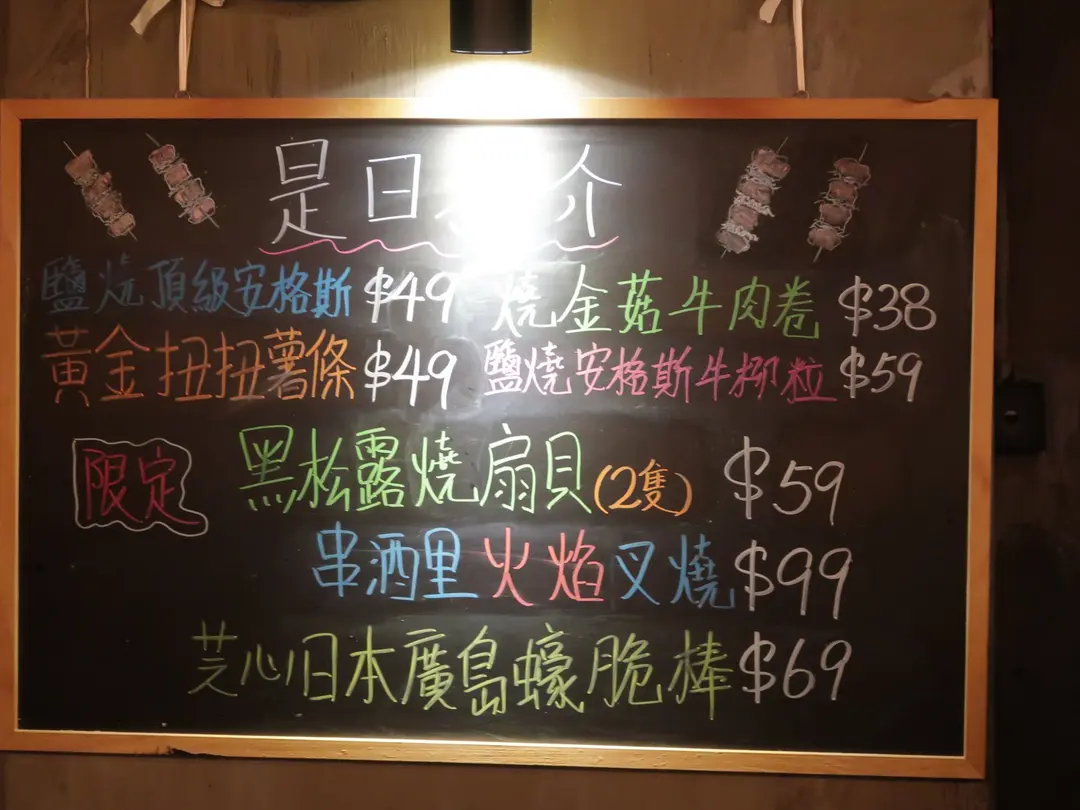 是日 介
鹽燒頂級安格斯 $49 燒金菇牛肉卷 $38
黃金扭扭薯條 $49 鹽燒安格斯牛柳粒 $59
限定 黑松露燒扇貝(2隻) $59
串酒里火焰叉燒 $99
芝心日本廣島蠔脆棒 $69